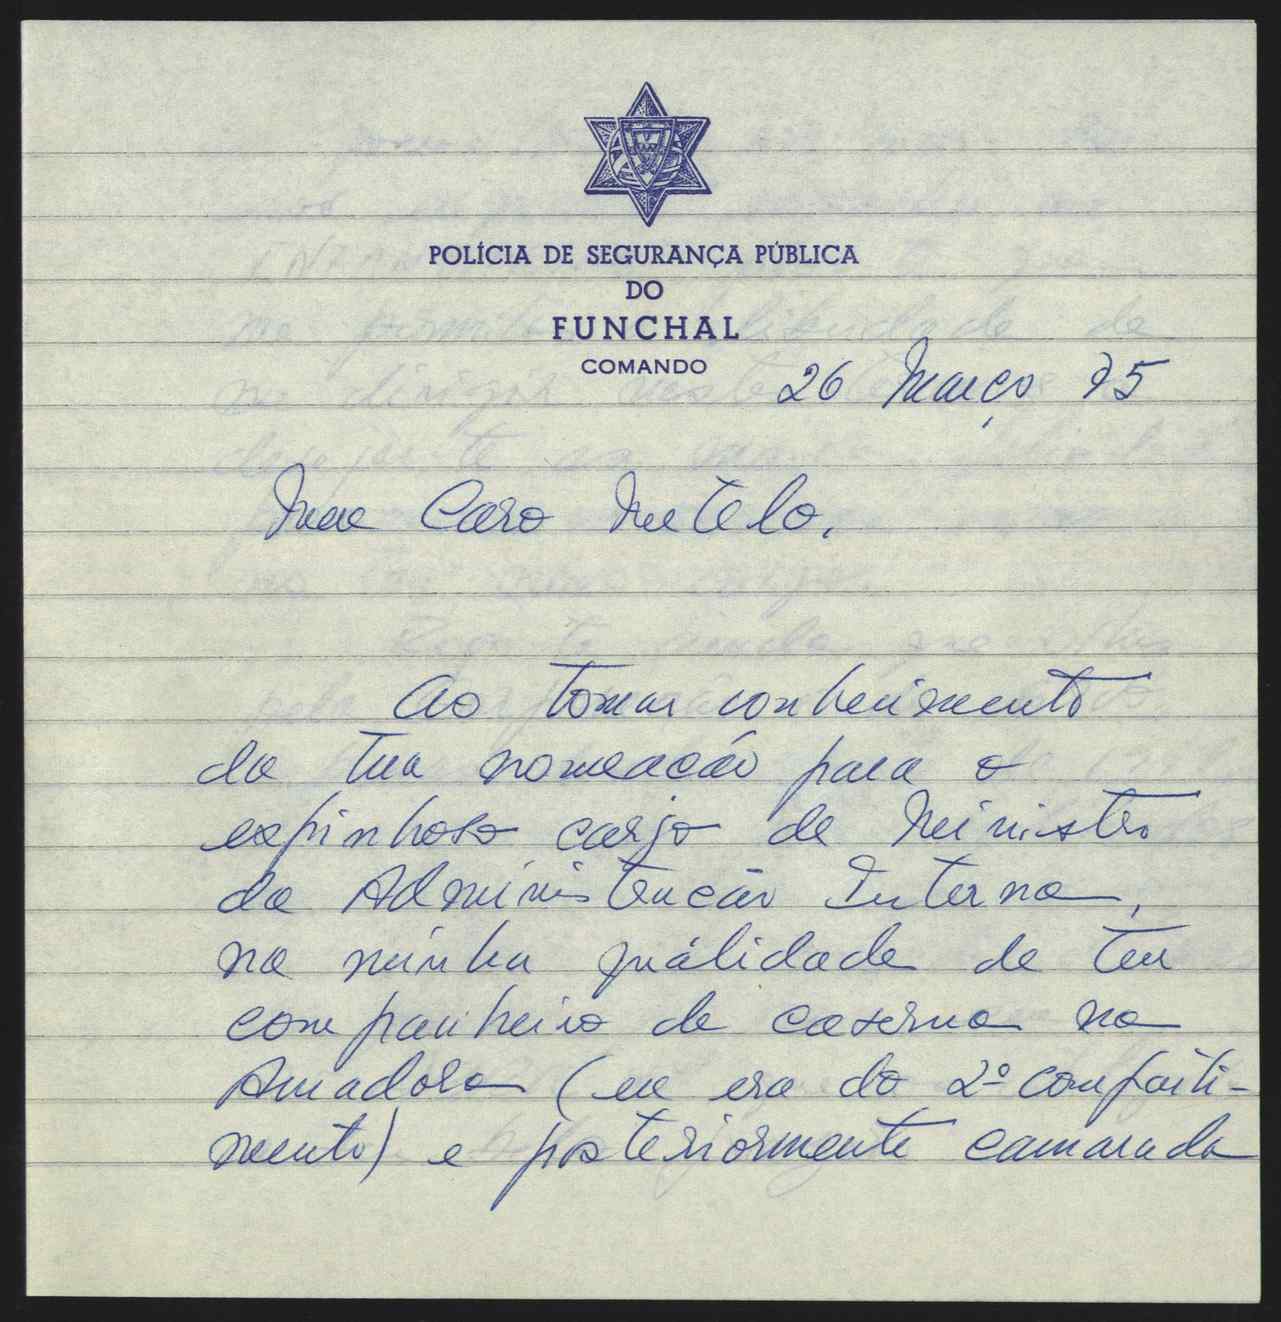 POLÍCIA DE SEGURANÇA PÚBLICA
DO
FUNCHAL
COMANDO
26 Março 75
Meu Caro Metelo,
Ao tomar conhecimento
da tua nomeação para o
espinhoso cargo de Ministro
da Administração Interna,
na minha quálidade de teu
companheiro de caserna na
Amadora (eu era do 2º comparti-
mento) e posteriormente camarada